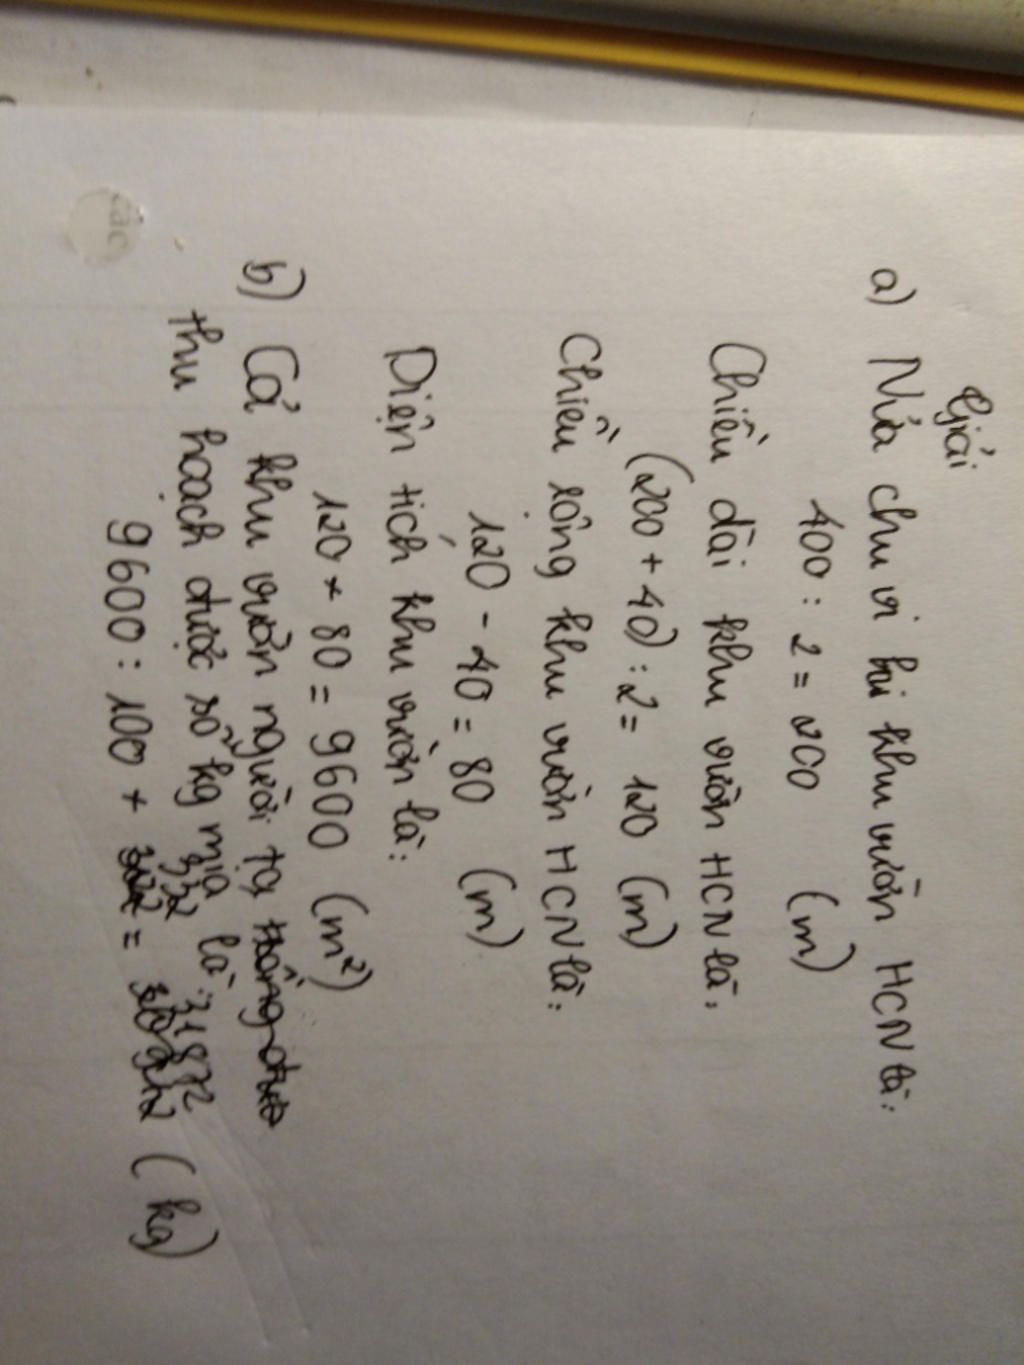 Giải
a) Nửa chu vi khu vườn HCN là:
400 : 2 = 200 (m)
Chiều dài khu vườn HCN là:
(200 + 40) : 2 = 120 (m)
Chiều rộng khu vườn HCN là:
120 - 40 = 80 (m)
Diện tích khu vườn là:
120 × 80 = 9600 (m²)
b) Cả khu vườn người ta
thu hoạch được số kg mía là:
332 31872
9600 : 100 × = (kg)
các